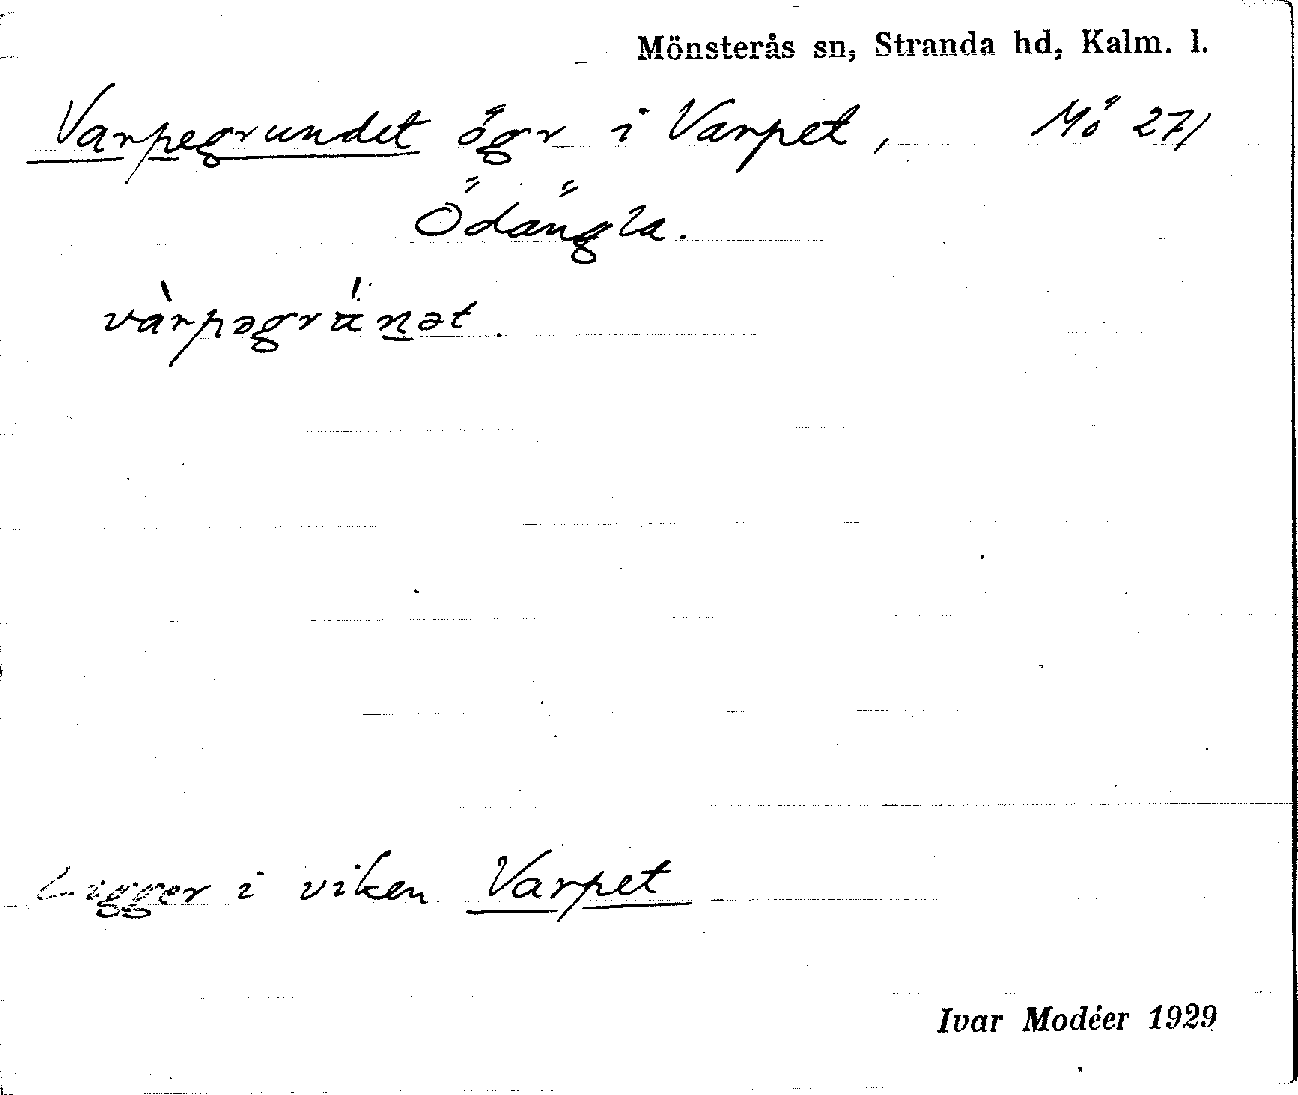 Mönsterås sn, Stranda hd, Kalm. l.
Varpegrundet ögr i Varpet, Mö 271
Ödängla.
vàrpəgrun̲ət.
Ligger i viken Varpet
Ivar Modéer 1929